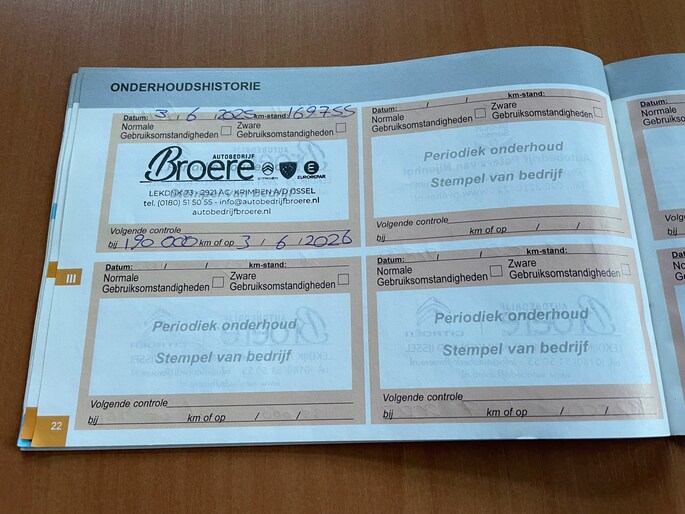 ONDERHOUDSHISTORIE
Datum: 3 / 6 / 2025 km-stand: 169755
Normale Gebruiksomstandigheden
Zware Gebruiksomstandigheden
AUTOBEDRIJF
Broere
CITROËN
EUROREPAR
LEKDIJK 73 - 2921 AC KRIMPEN A/D IJSSEL
tel. (0180) 51 50 55 - info@autobedrijfbroere.nl
autobedrijfbroere.nl
Volgende controle
bij 190 000 km of op 3 / 6 / 2026
Datum: / / km-stand:
Normale Gebruiksomstandigheden
Zware Gebruiksomstandigheden
Periodiek onderhoud
Stempel van bedrijf
Volgende controle
bij km of op / /
Datum: / / km-stand:
Normale Gebruiksomstandigheden
Zware Gebruiksomstandigheden
Periodiek onderhoud
Stempel van bedrijf
Volgende controle
bij km of op / /
Datum: / / km-stand:
Normale Gebruiksomstandigheden
Zware Gebruiksomstandigheden
Periodiek onderhoud
Stempel van bedrijf
Volgende controle
bij km of op / /
III
22